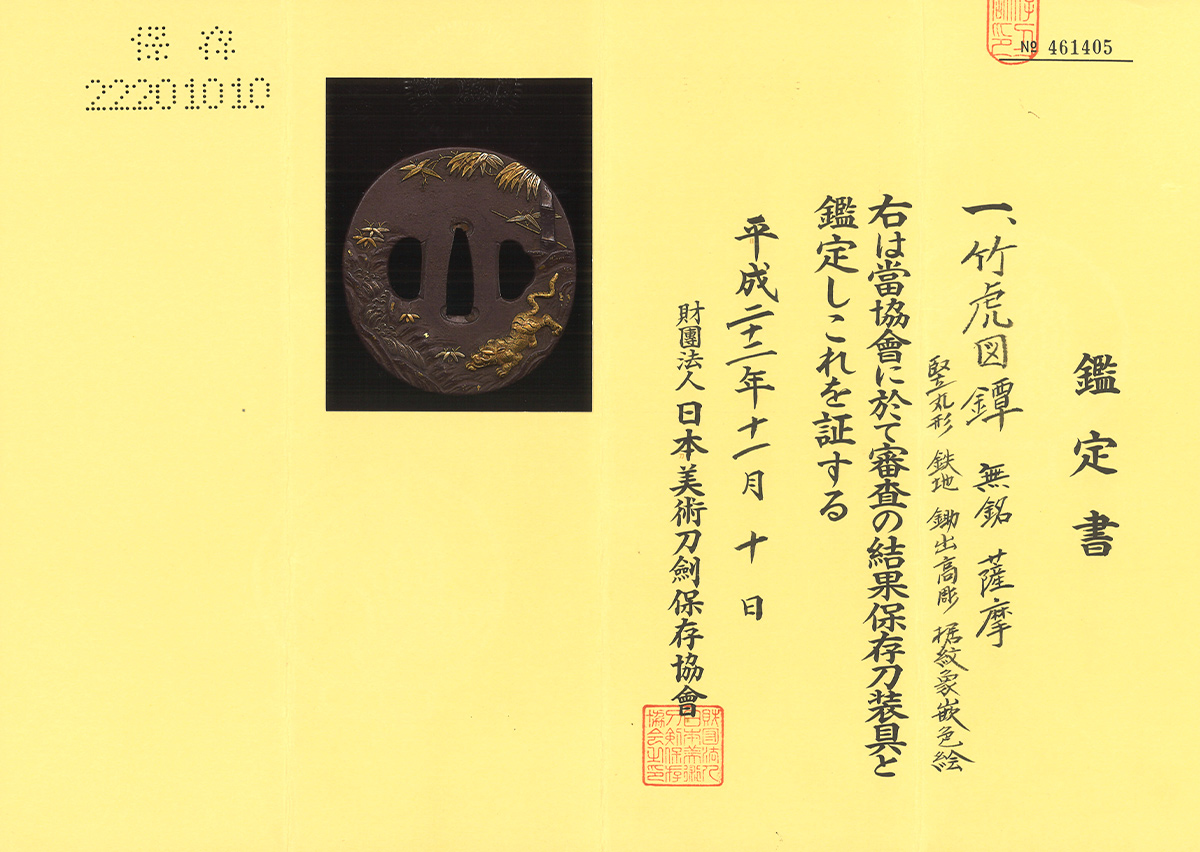 保存
22201010
№ 461405
鑑定書
一、竹虎図鐔 無銘 薩摩
竪丸形 鉄地 鋤出高彫 据紋象嵌色絵
右は當協會に於て審査の結果保存刀装具と
鑑定しこれを証する
平成二十二年十一月十日
財團法人日本美術刀劍保存協會
財団法人
日本美術
刀剣保存
協会之印